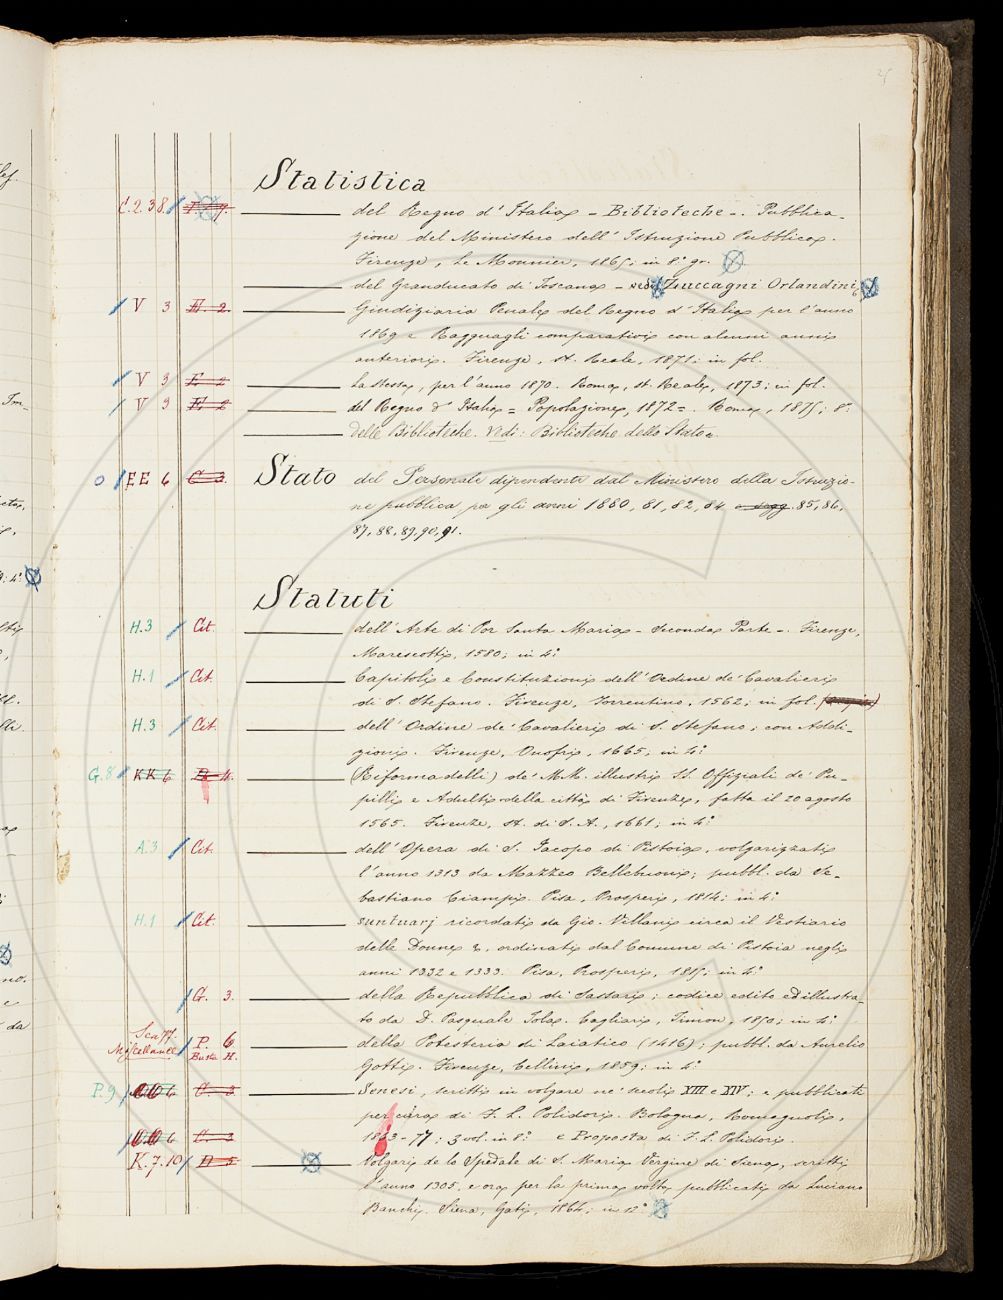 Statistica
C.2.38. del Regno d'Italia - Biblioteche -. Pubblica-
zione del Ministero dell'Istruzione Pubblica.
Firenze, Le Monnier, 1865; in 8° gr.
del Granducato di Toscana - vedi Zuccagni Orlandini
V 3 E. 2. Giudiziaria Penale del Regno d'Italia per l'anno
1869 e Ragguagli comparativi con alcuni anni
anteriori. Firenze, St. Reale, 1871; in fol.
V 3 E 2 La stessa, per l'anno 1870. Roma, St. Reale, 1873; in fol.
V 3 E 2 del Regno d'Italia = Popolazione, 1872 =. Roma, 1875; 8°.
delle Biblioteche. Vedi: Biblioteche dello Stato.
O EE 6 C 3. Stato del Personale dipendente dal Ministero della Istruzio-
ne pubblica per gli anni 1880, 81, 82, 84 e segg. 85, 86,
87, 88, 89, 90, 91.
Statuti
H.3 Cit. dell'Arte di Por Santa Maria - Seconda Parte -. Firenze,
Marescotti, 1580; in 4°
H.1 Cit. Capitoli e Constituzioni dell'Ordine de' Cavalieri
di S. Stefano. Firenze, Torrentino, 1562; in fol.
H.3 Cit. dell'Ordine de' Cavalieri di S. Stefano; con Addi-
zioni. Firenze, Onofri, 1665; in 4°
G.8 KK 6 D. 4. (Riforma delli) de' M.M. illustri SS. Offiziali de' Pu-
pilli e Adulti della città di Firenze, fatta il 20 agosto
1565. Firenze, St. di S. A., 1661; in 4°
A.3 Cit. dell'Opera di S. Jacopo di Pistoia, volgarizzati
l'anno 1313 da Mazzeo Bellebuoni; pubbl. da Se-
bastiano Ciampi. Pisa, Prosperi, 1814; in 4°
H.1 Cit suntuarj ricordati da Gio. Villani circa il Vestiario
delle Donne &, ordinati dal Comune di Pistoia negli
anni 1332 e 1333. Pisa, Prosperi, 1815; in 4°
G. 3. della Repubblica di Sassari; codice edito ed illustra-
to da D. Pasquale Tola. Cagliari, Timon, 1850; in 4°
Miscellanee P. 6 Busta H. della Potesteria di Laiatico (1416); pubbl. da Aurelio
Gotti. Firenze, Cellini, 1859; in 4°
P.9 6 C. 3 Senesi, scritti in volgare ne' secoli XIII e XIV; e pubblicati
per cura di F. L. Polidori. Bologna, Romagnoli,
6 C 3 1863-77; 3 vol. in 8° e Proposta di F. L. Polidori.
K.7.10 D 5 Volgari de lo Spedale di S. Maria Vergine di Siena, scritti
l'anno 1305, e ora per la prima volta pubblicati da Luciano
Banchi. Siena, Gati, 1864; in 12°